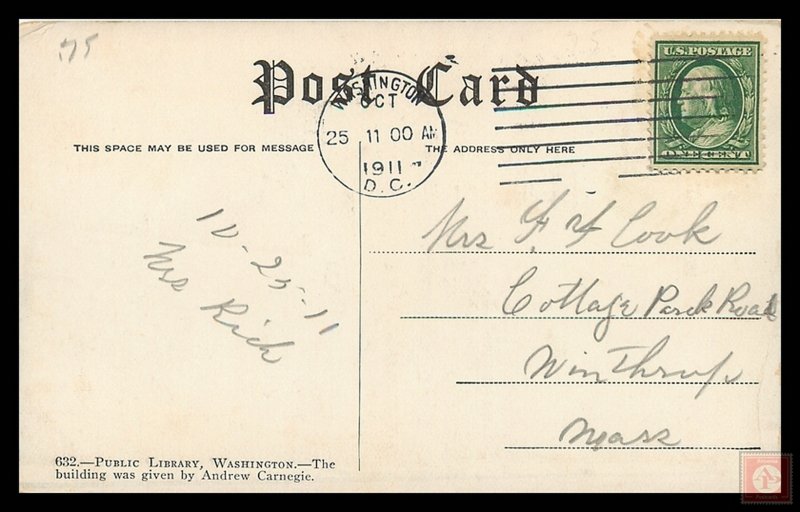 75
Post Card
WASHINGTON
OCT
25 11 00 AM
1911
D.C.
U.S. POSTAGE
ONE CENT
THIS SPACE MAY BE USED FOR MESSAGE
THE ADDRESS ONLY HERE
10-25-11
Mrs Rich
Mrs F. F. Cook
Cottage Park Road
Winthrop
Mass
632.—PUBLIC LIBRARY, WASHINGTON.—The
building was given by Andrew Carnegie.